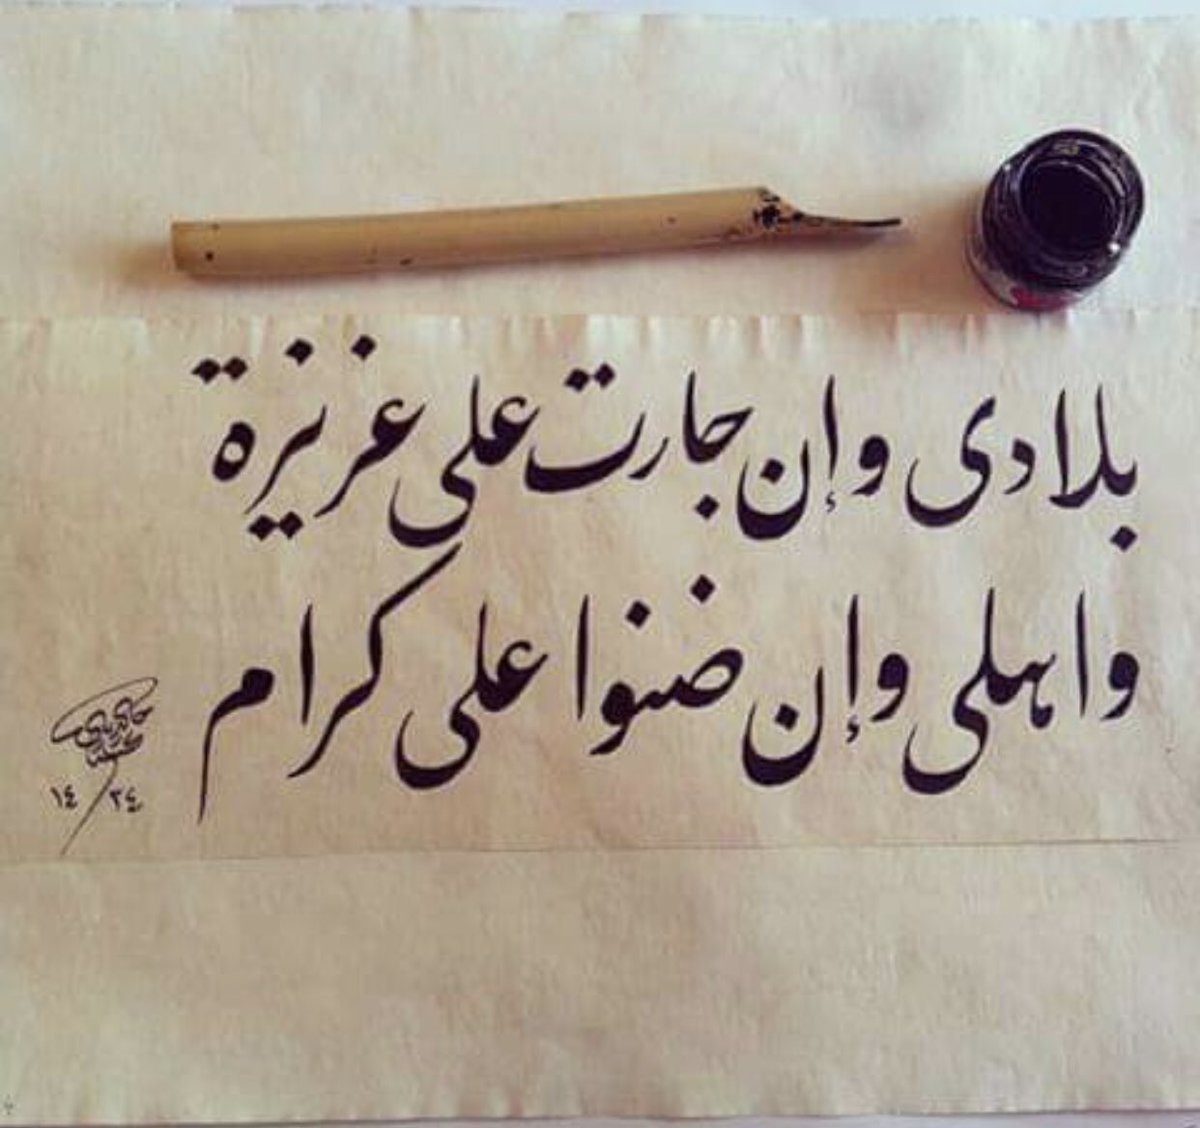 بلادي وإن جارت علي عزيزة
واهلي وإن ضنوا علي كرام
١٤٣٤